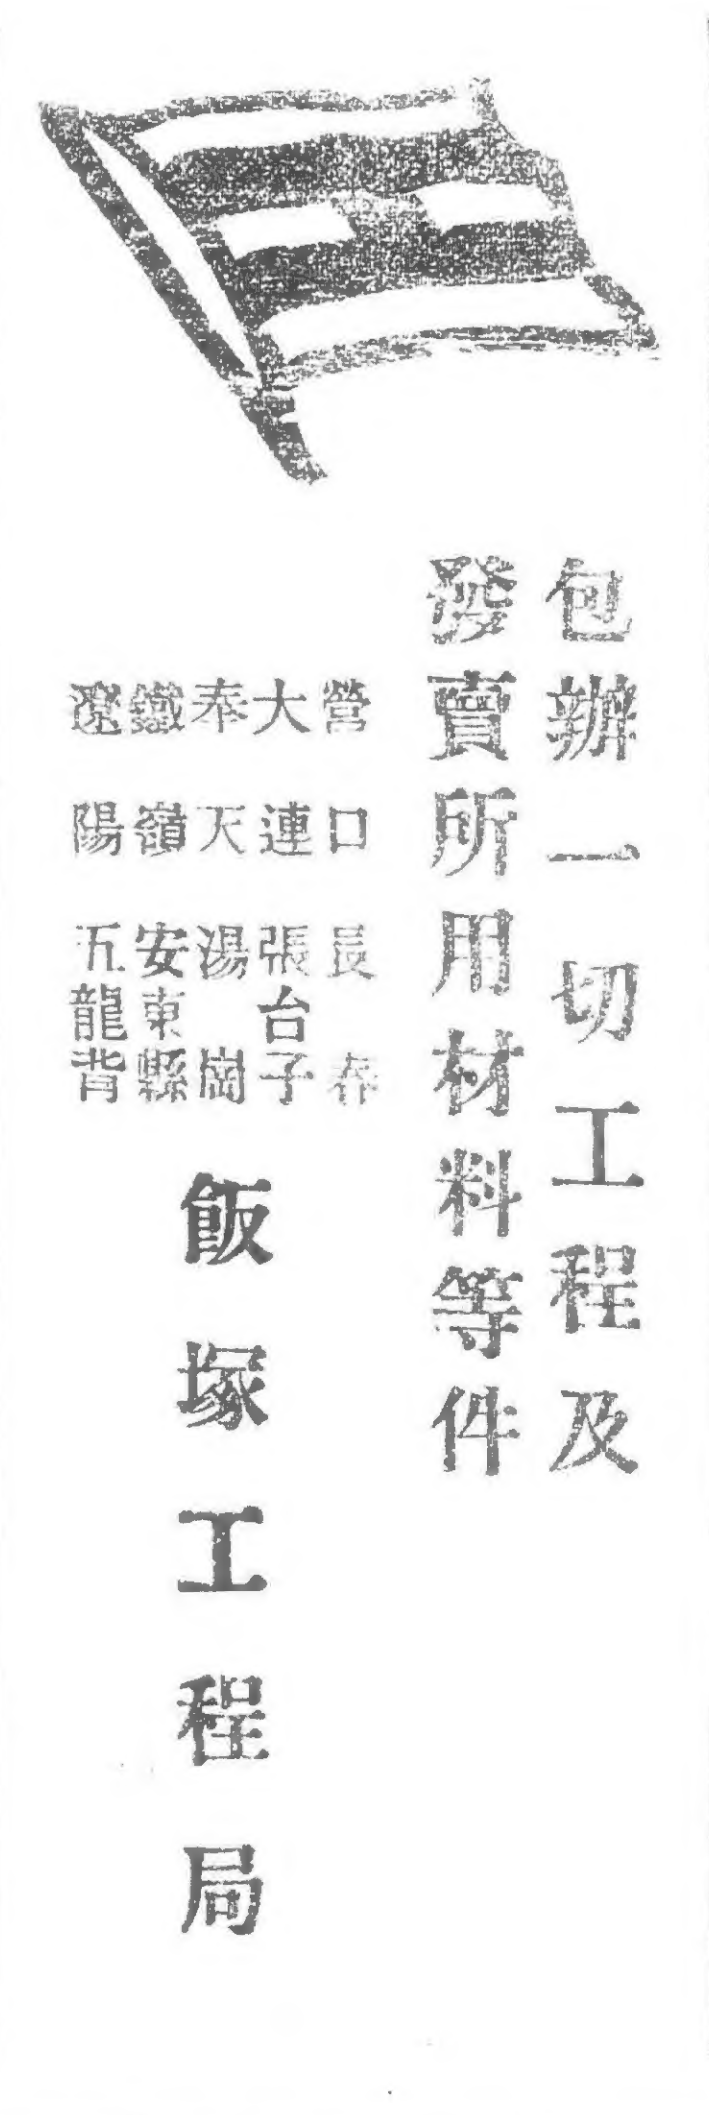 包辦一切工程及
發賣所用材料等件
營口 長春
大連 張台子
奉天 湯崗
鐵嶺 安東縣
遼陽 五龍背
飯塚工程局